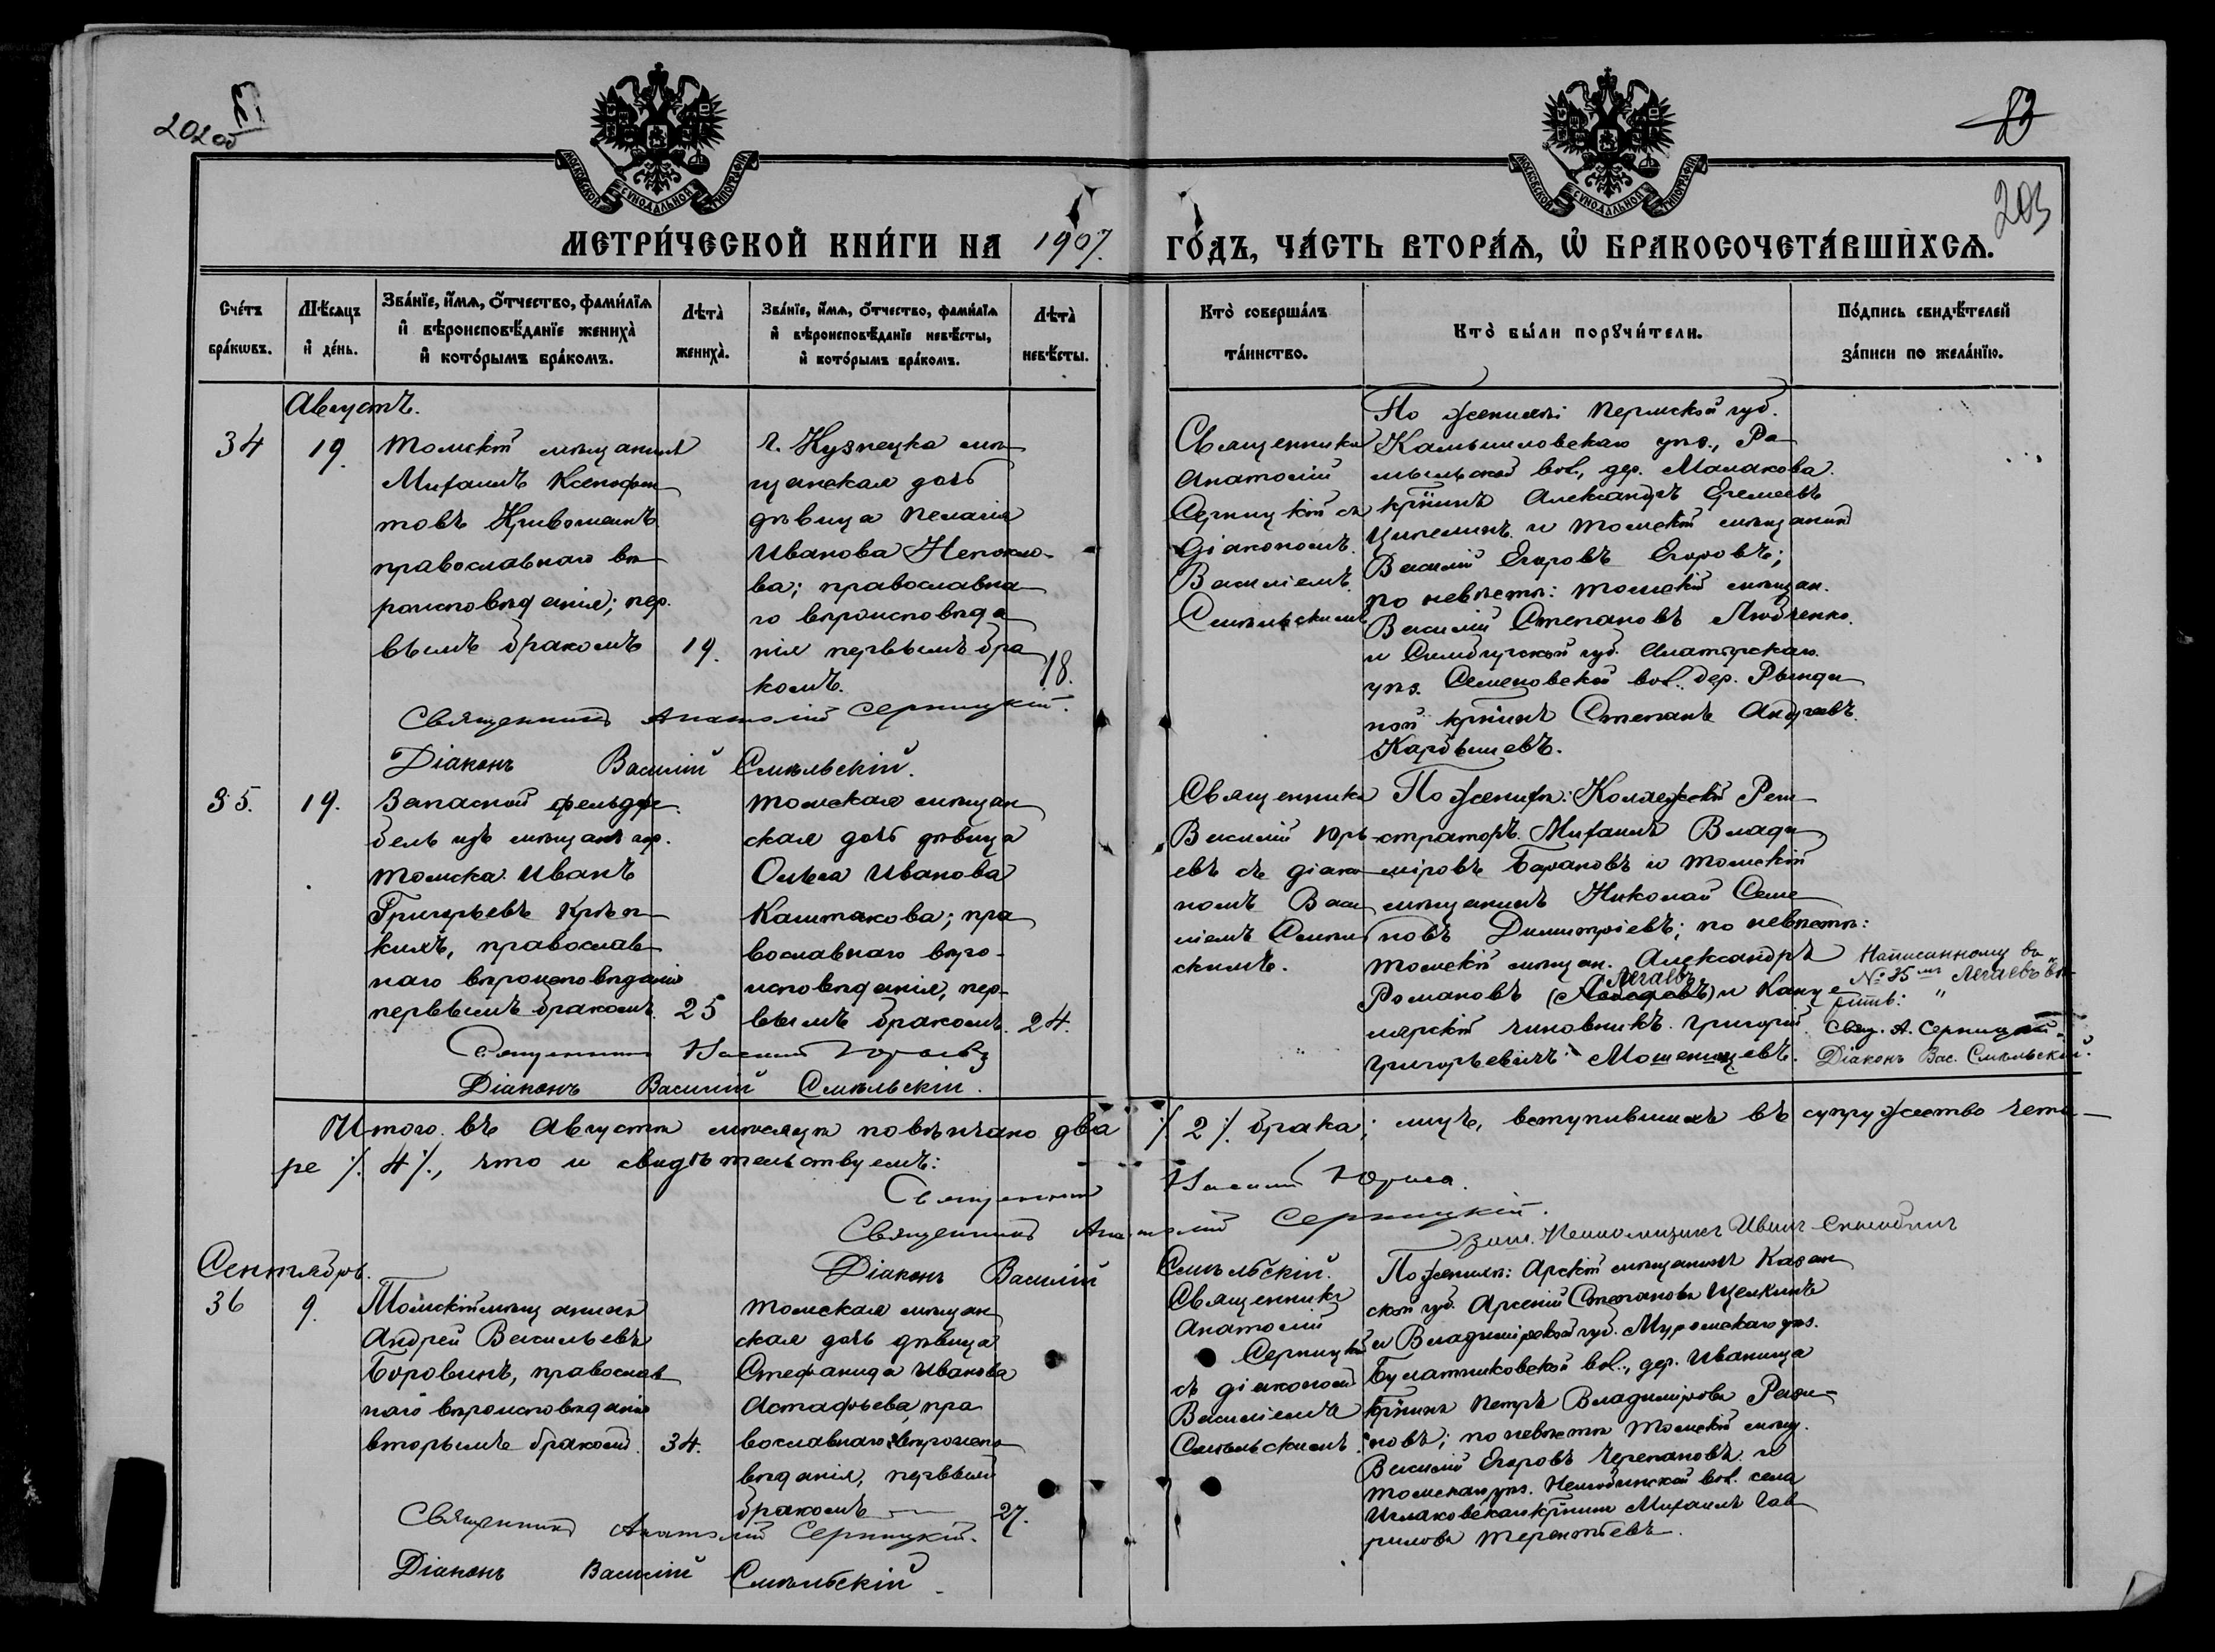 202об
203
МОСКОВСКОЙ СѴНОДАЛЬНОЙ ТИПОГРАФІИ
МОСКОВСКОЙ СѴНОДАЛЬНОЙ ТИПОГРАФІИ
МЕТРИ́ЧЕСКОЙ КНИ́ГИ НА 1907.
ГО́ДЪ, ЧА́СТЬ ВТОРА́Ѧ, Ѡ҆ БРАКОСОЧЕТА́ВШИХСѦ.
Сче́тъ бра́кѡвъ.
Мѣ́сѧцъ и҆ де́нь.
Зва́нїе, и҆́мѧ, ѻ҆́тчество, фами́лїѧ
и҆ вѣроисповѣ́данїе жениха̀
и҆ кото́рымъ бра́комъ.
Лѣта̀ жениха̀.
Зва́нїе, и҆́мѧ, ѻ҆́тчество, фами́лїѧ
и҆ вѣроисповѣ́данїе невѣ́сты,
и҆ кото́рымъ бра́комъ.
Лѣта̀ невѣ́сты.
Кто̀ соверша́лъ
та́инство.
Кто̀ бы́ли порꙋчи́тели.
По́дпись свидѣ́телей
за́писи по жела́нїю.
Августъ.
34
19.
Томскій мѣщанинъ
Михаилъ Ксенофон
товъ Кривошеинъ
православнаго вѣ
роисповѣданія; пер
вымъ бракомъ
19.
г. Кузнецка мѣ
щанская дочь
дѣвица Пелагія
Иванова
ва; православна
го вѣроисповѣда
нія первымъ бра
комъ.
18.
Священникъ
Анатолій
Серницкій съ
діакономъ
Василіемъ
Смѣльскимъ
По женихѣ: Пермской губ.
Камышловскаго уѣз., Ра
мыльской вол., дер. Малакова
кр̃нинъ Александръ Еремеевъ
и Томскій мѣщанинъ
Василій Егоровъ Егоровъ;
по невѣстѣ: Томскій мѣщан.
Василій Степановъ Любченко
и Симбирской губ. Алатырскаго
уѣз. Семеновской вол. дер. Рынди
ной кр̃нинъ Степанъ Андреевъ
Карбышевъ.
Священникъ Анатолій Серницкій.
Діаконъ Василій Смѣльскій.
35.
19.
Запасной фельдфе
бель изъ мѣщанъ гор.
Томска Иванъ
Григорьевъ Крѣп
кихъ, православ
наго вѣроисповѣданія
первымъ бракомъ.
25
Томская мѣщан
ская дочь дѣвица
Ольга Иванова
Каштакова; пра
вославнаго вѣро-
исповѣданія, пер-
вымъ бракомъ.
24.
Священникъ
Василій Юрь
евъ съ діако
номъ Васи
ліемъ Смѣль
скимъ.
По женихѣ: Коллежскій Реги
страторъ Михаилъ Влади
міровъ Барановъ и Томскій
мѣщанинъ Николай Семе
новъ Димитріевъ; по невѣстѣ:
Томскій мѣщан. Александръ
Легаевъ
Романовъ (Лебедевъ) и Канце
лярскій чиновникъ Григорій
Григорьевичъ Мошенцевъ.
Написанному въ
№ 35мъ Легаевъ вѣ-
рить:
Свящ. А. Серницкій.
Діаконъ Вас. Смѣльскій.
Священникъ Василій Юрьевъ
Діаконъ Василій Смѣльскій.
Итого въ Августѣ мѣсяцѣ повѣнчано два ./. 2 ./. брака; лицъ, вступившихъ въ супружество четы-
ре ./. 4 ./., что и свидѣтельствуемъ:
Священникъ Василій Юрьевъ.
Священникъ Анатолій Серницкій.
Діаконъ Василій Смѣльскій.
Сентябрь.
36
9.
Томскій мѣщанинъ
Андрей Васильевъ
Боровинъ, православ
наго вѣроисповѣданія
вторымъ бракомъ.
34.
Томская мѣщан
ская дочь дѣвица
Стефанида Иванова
Астафьева, пра
вославнаго вѣроиспо
вѣданія, первымъ
бракомъ
27.
Священникъ
Анатолій
Серницкій
съ діакономъ
Василіемъ
Смѣльскимъ
По женихѣ: Арскій мѣщанинъ Казан
ской губ. Арсеній Степановъ Щелкинъ
и Владимірской губ. Муромскаго уѣз.
Булатниковской вол., дер. Иваница
кр̃нинъ Петръ Владиміровъ
новъ; по невѣстѣ Томскій мѣщ.
Василій Егоровъ Черепановъ и
Томскаго уѣз. Нелюбинской вол. села
Иглаковскаго кр̃нинъ Михаилъ Гав
риловъ Терентьевъ.
Священникъ Анатолій Серницкій.
Діаконъ Василій Смѣльскій.